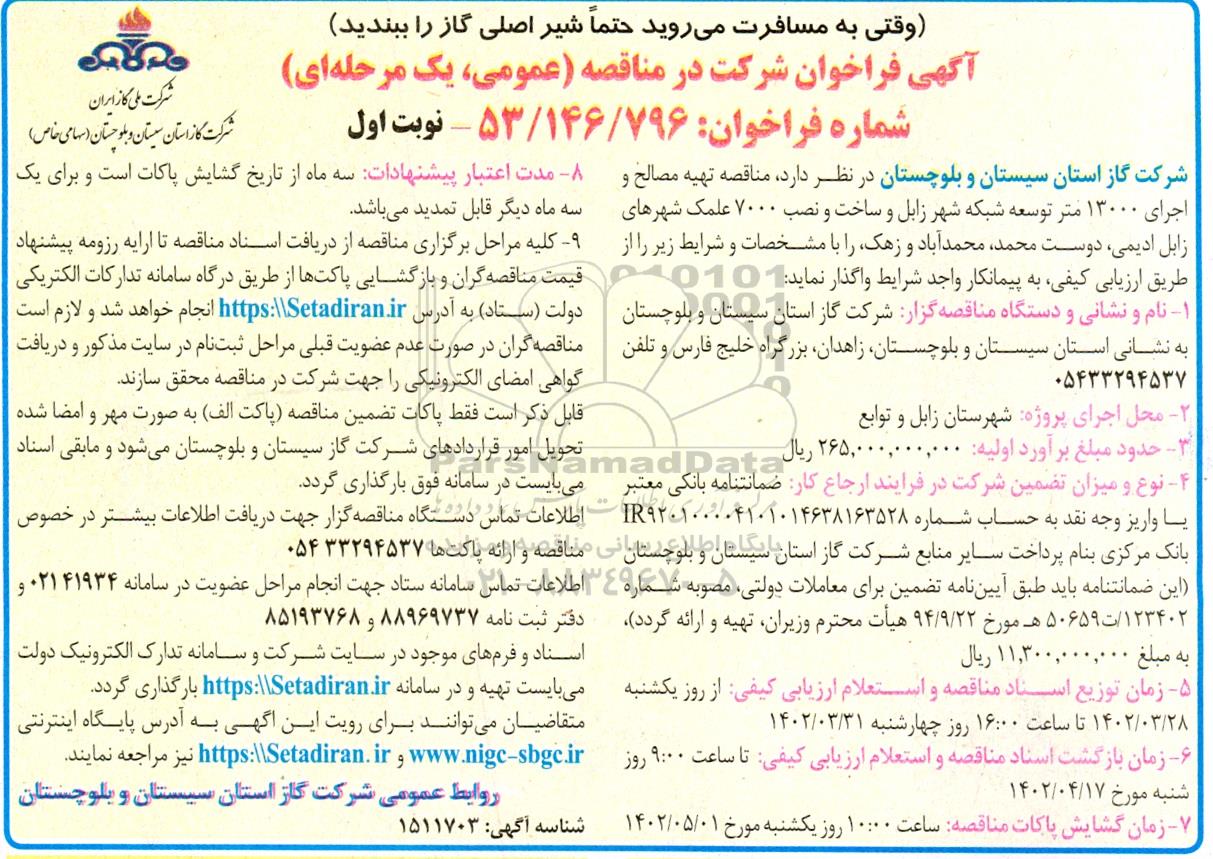 (وقتی به مسافرت می‌روید حتماً شیر اصلی گاز را ببندید)
آگهی فراخوان شرکت در مناقصه (عمومی، یک مرحله‌ای)
شماره فراخوان: ۵۳/۱۴۶/۷۹۶ – نوبت اول
شرکت ملی گاز ایران
شرکت گاز استان سیستان و بلوچستان (سهامی خاص)
شرکت گاز استان سیستان و بلوچستان در نظر دارد، مناقصه تهیه مصالح و
اجرای ۱۳۰۰۰ متر توسعه شبکه شهر زابل و ساخت و نصب ۷۰۰۰ علمک شهرهای
زابل ادیمی، دوست محمد، محمدآباد و زهک، را با مشخصات و شرایط زیر را از
طریق ارزیابی کیفی، به پیمانکار واجد شرایط واگذار نماید:
۱- نام و نشانی و دستگاه مناقصه‌گزار: شرکت گاز استان سیستان و بلوچستان
به نشانی استان سیستان و بلوچستان، زاهدان، بزرگراه خلیج فارس و تلفن
۰۵۴۳۳۲۹۴۵۳۷
۲- محل اجرای پروژه: شهرستان زابل و توابع
۳- حدود مبلغ برآورد اولیه: ۲۶۵,۰۰۰,۰۰۰,۰۰۰ ریال
۴- نوع و میزان تضمین شرکت در فرایند ارجاع کار: ضمانتنامه بانکی معتبر
یا واریز وجه نقد به حساب شماره IR۹۲۰۱۰۰۰۰۴۱۰۱۰۱۴۶۳۸۱۶۳۵۲۸
بانک مرکزی بنام پرداخت سایر منابع شرکت گاز استان سیستان و بلوچستان
(این ضمانتنامه باید طبق آیین‌نامه تضمین برای معاملات دولتی، مصوبه شماره
۱۲۳۴۰۲/ت۵۰۶۵۹ هـ مورخ ۹۴/۹/۲۲ هیأت محترم وزیران، تهیه و ارائه گردد)،
به مبلغ ۱۱,۳۰۰,۰۰۰,۰۰۰ ریال
۵- زمان توزیع اسناد مناقصه و استعلام ارزیابی کیفی: از روز یکشنبه
۱۴۰۲/۰۳/۲۸ تا ساعت ۱۶:۰۰ روز چهارشنبه ۱۴۰۲/۰۳/۳۱
۶- زمان بازگشت اسناد مناقصه و استعلام ارزیابی کیفی: تا ساعت ۹:۰۰ روز
شنبه مورخ ۱۴۰۲/۰۴/۱۷
۷- زمان گشایش پاکات مناقصه: ساعت ۱۰:۰۰ روز یکشنبه مورخ ۱۴۰۲/۰۵/۰۱
۸- مدت اعتبار پیشنهادات: سه ماه از تاریخ گشایش پاکات است و برای یک
سه ماه دیگر قابل تمدید می‌باشد.
۹- کلیه مراحل برگزاری مناقصه از دریافت اسناد مناقصه تا ارایه رزومه پیشنهاد
قیمت مناقصه‌گران و بازگشایی پاکت‌ها از طریق درگاه سامانه تدارکات الکتریکی
دولت (ستاد) به آدرس https:\\Setadiran.ir انجام خواهد شد و لازم است
مناقصه‌گران در صورت عدم عضویت قبلی مراحل ثبت‌نام در سایت مذکور و دریافت
گواهی امضای الکترونیکی را جهت شرکت در مناقصه محقق سازند.
قابل ذکر است فقط پاکات تضمین مناقصه (پاکت الف) به صورت مهر و امضا شده
تحویل امور قراردادهای شرکت گاز سیستان و بلوچستان می‌شود و مابقی اسناد
می‌بایست در سامانه فوق بارگذاری گردد.
اطلاعات تماس دستگاه مناقصه‌گزار جهت دریافت اطلاعات بیشتر در خصوص
مناقصه و ارائه پاکت‌ها ۳۳۲۹۴۵۳۷ ۰۵۴
اطلاعات تماس سامانه ستاد جهت انجام مراحل عضویت در سامانه ۴۱۹۳۴ ۰۲۱ و
دفتر ثبت نامه ۸۸۹۶۹۷۳۷ و ۸۵۱۹۳۷۶۸
اسناد و فرم‌های موجود در سایت شرکت و سامانه تدارک الکترونیک دولت
می‌بایست تهیه و در سامانه https:\\Setadiran.ir بارگذاری گردد.
متقاضیان می‌توانند برای رویت این اگهی به آدرس پایگاه اینترنتی
www.nigc-sbgc.ir و https:\\Setadiran.ir نیز مراجعه نمایند.
روابط عمومی شرکت گاز استان سیستان و بلوچستان
شناسه آگهی: ۱۵۱۱۷۰۳
ParsNamadData
پایگاه اطلاع رسانی مناقصه و مزایده
۰۲۱-۸۸۳۴۹۶۷۰-۵